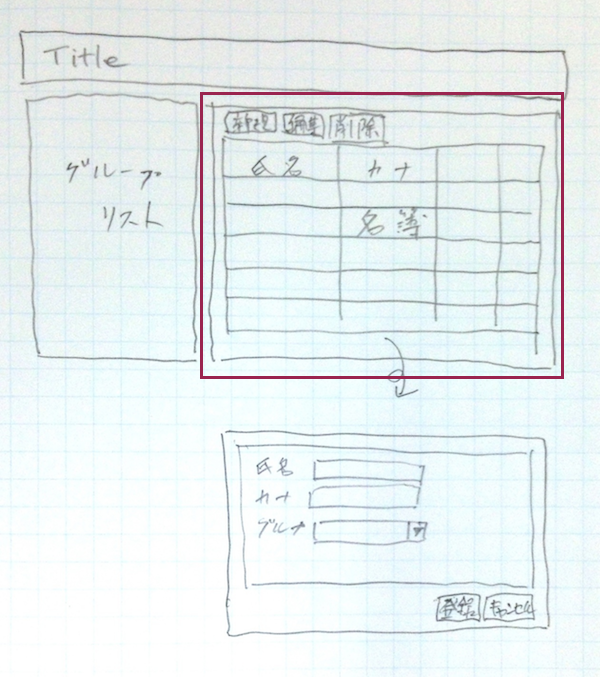 Title
グループ
リスト
新規 編集 削除
氏名 カナ
名簿
氏名
カナ
グループ
登録 キャンセル